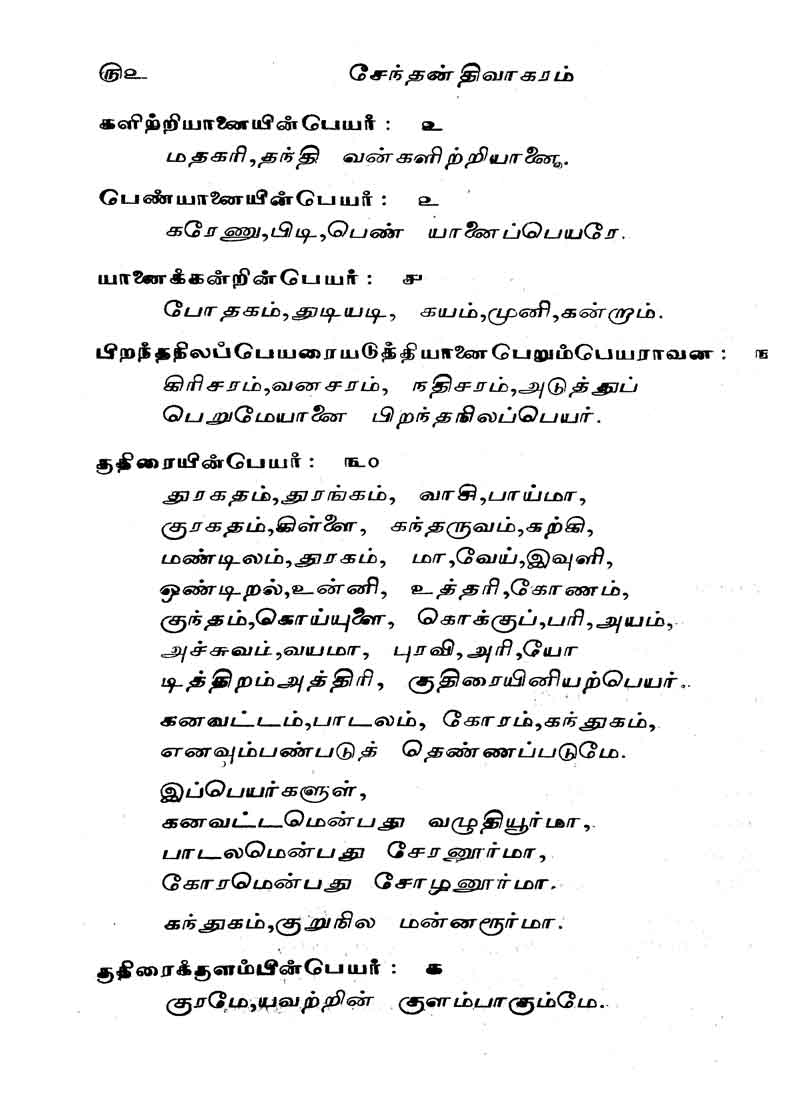 ௫௨ சேந்தன் திவாகரம்
களிற்றியானையின்பெயர் : ௨
மதகரி,தந்தி வன்களிற்றியானை.
பெண்யானையின்பெயர் : ௨
கரேணு,பிடி,பெண் யானைப்பெயரே.
யானைக்கன்றின்பெயர் : ௪
போதகம்,துடியடி, கயம்,முனி,கன்றும்.
பிறந்தநிலப்பெயரையடுத்தியானைபெறும்பெயராவன : ௩
கிரிசரம்,வனசரம், நதிசரம்,அடுத்துப்
பெறுமேயானை பிறந்தநிலப்பெயர்.
குதிரையின்பெயர் : ௩௦
துரகதம்,துரங்கம், வாசி,பாய்மா,
குரகதம்,கிள்ளை, கந்தருவம்,கற்கி,
மண்டிலம்,தூகம், மா,வேய்,இவுளி,
ஒண்டிறல்,உன்னி, உத்தரி,கோணம்,
குந்தம்,கொய்யுளை, கொக்குப்,பரி,அயம்,
அச்சுவம்,வயமா, புரவி,அரி,யோ
டித்திறம்அத்திரி, குதிரையினியற்பெயர்.
கனவட்டம்,பாடலம், கோரம்,கந்துகம்,
எனவும்பண்படுத் தெண்ணப்படுமே.
இப்பெயர்களுள்,
கனவட்டமென்பது வழுதியூர்மா,
பாடலமென்பது சேரனூர்மா,
கோரமென்பது சோழனூர்மா.
கந்துகம்,குறுநில மன்னரூர்மா.
குதிரைக்குளம்பின்பெயர் : ௧
குரமே,யவற்றின் குளம்பாகும்மே.